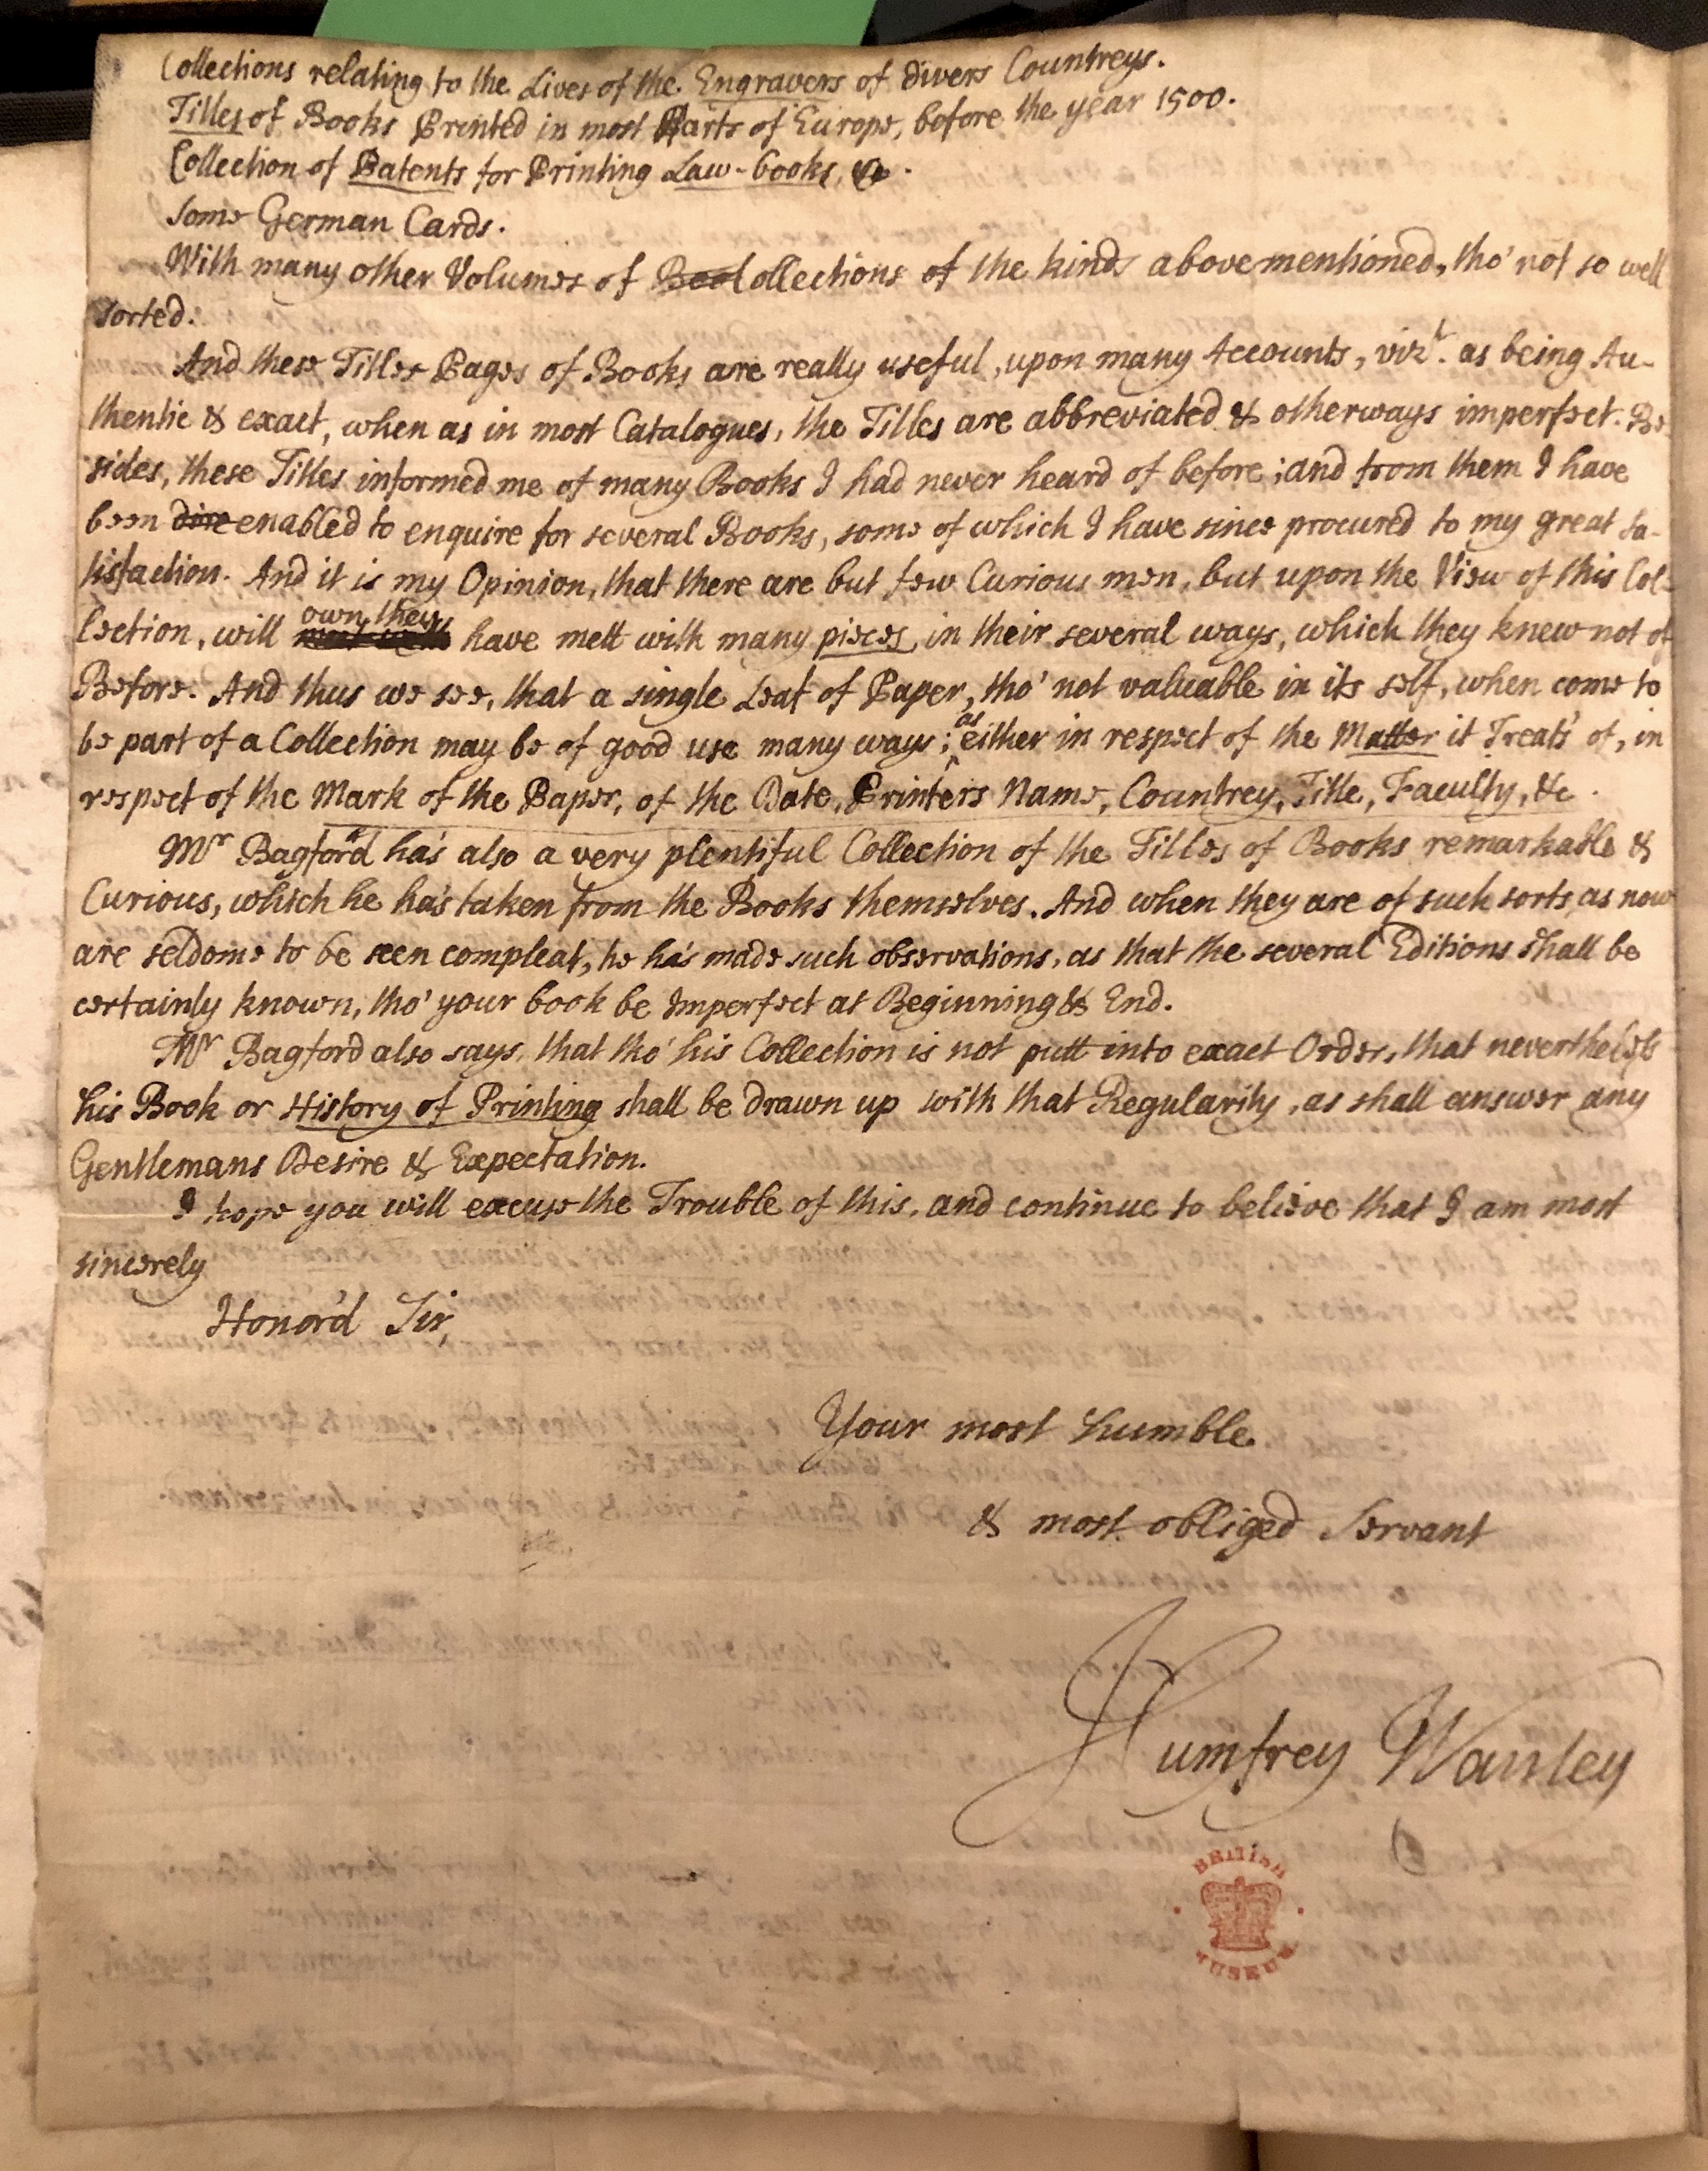 Collections relating to the Lives of the Engravers of divers Countreys.
Titles of Books Printed in most Parts of Europe, before the year 1500.
Collection of Patents for Printing Law-books, &c.
Some German Cards.
With many other Volumes of Boo Collections of the kinds abovementioned, tho' not so well
sorted.
And these Titles Pages of Books are really useful, upon many Accounts, vizt. as being Au-
thentic & exact, when as in most Catalogues, the Titles are abbreviated & otherways imperfect. Be-
sides, these Titles informed me of many Books I had never heard of before; and from them I have
been dire enabled to enquire for several Books, some of which I have since procured to my great sa-
tisfaction. And it is my Opinion, that there are but few Curious men, but upon the View of this Col-
lection, will own they have mett with many pieces, in their several ways, which they knew not of
Before. And thus we see, that a single Leaf of Paper, tho' not valuable in its self, when come to
be part of a Collection may be of good use many ways; as either in respect of the Matter it Treats of, in
respect of the Mark of the Paper, of the Date, Printers Name, Countrey, Title, Faculty, &c.
Mr Bagford ha's also a very plentiful Collection of the Titles of Books remarkable &
Curious, which he ha's taken from the Books themselves. And when they are of such sorts, as now
are seldome to be seen compleat, he ha's made such observations, as that the several Editions shall be
certainly known, tho' your book be Imperfect at Beginning & End.
Mr Bagford also says, that tho' his Collection is not putt into exact Order, that nevertheless
his Book or History of Printing shall be drawn up with that Regularity, as shall answer any
Gentlemans Desire & Expectation.
I hope you will excuse the Trouble of this, and continue to believe that I am most
sincerely
Honor'd Sir,
Your most humble
& most obliged Servant
Humfrey Wanley
BRITISH
MUSEUM